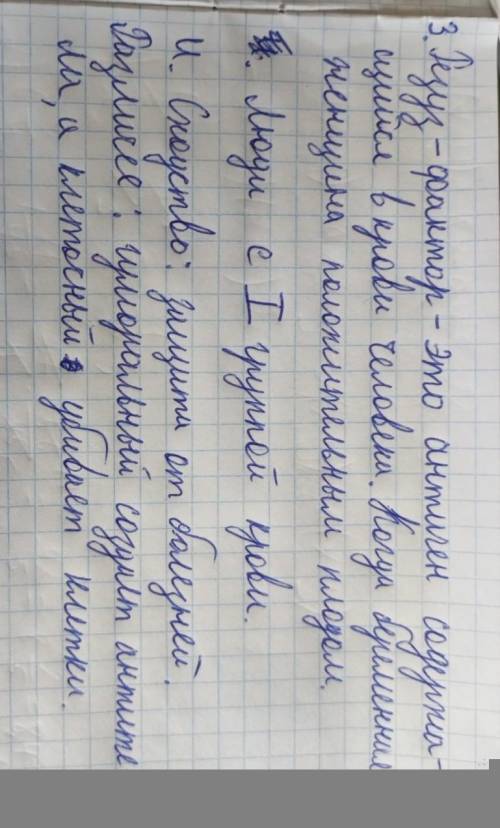 3. Резуз-фактор - это антиген содержа-
щийся в крови человека. Когда беременные
женщина положительным плодом.
. Люди с I группой крови.
и. Сходство: защита от болезней.
Различее: гуморальный создает антите
ла, а клеточный убивает клетки.